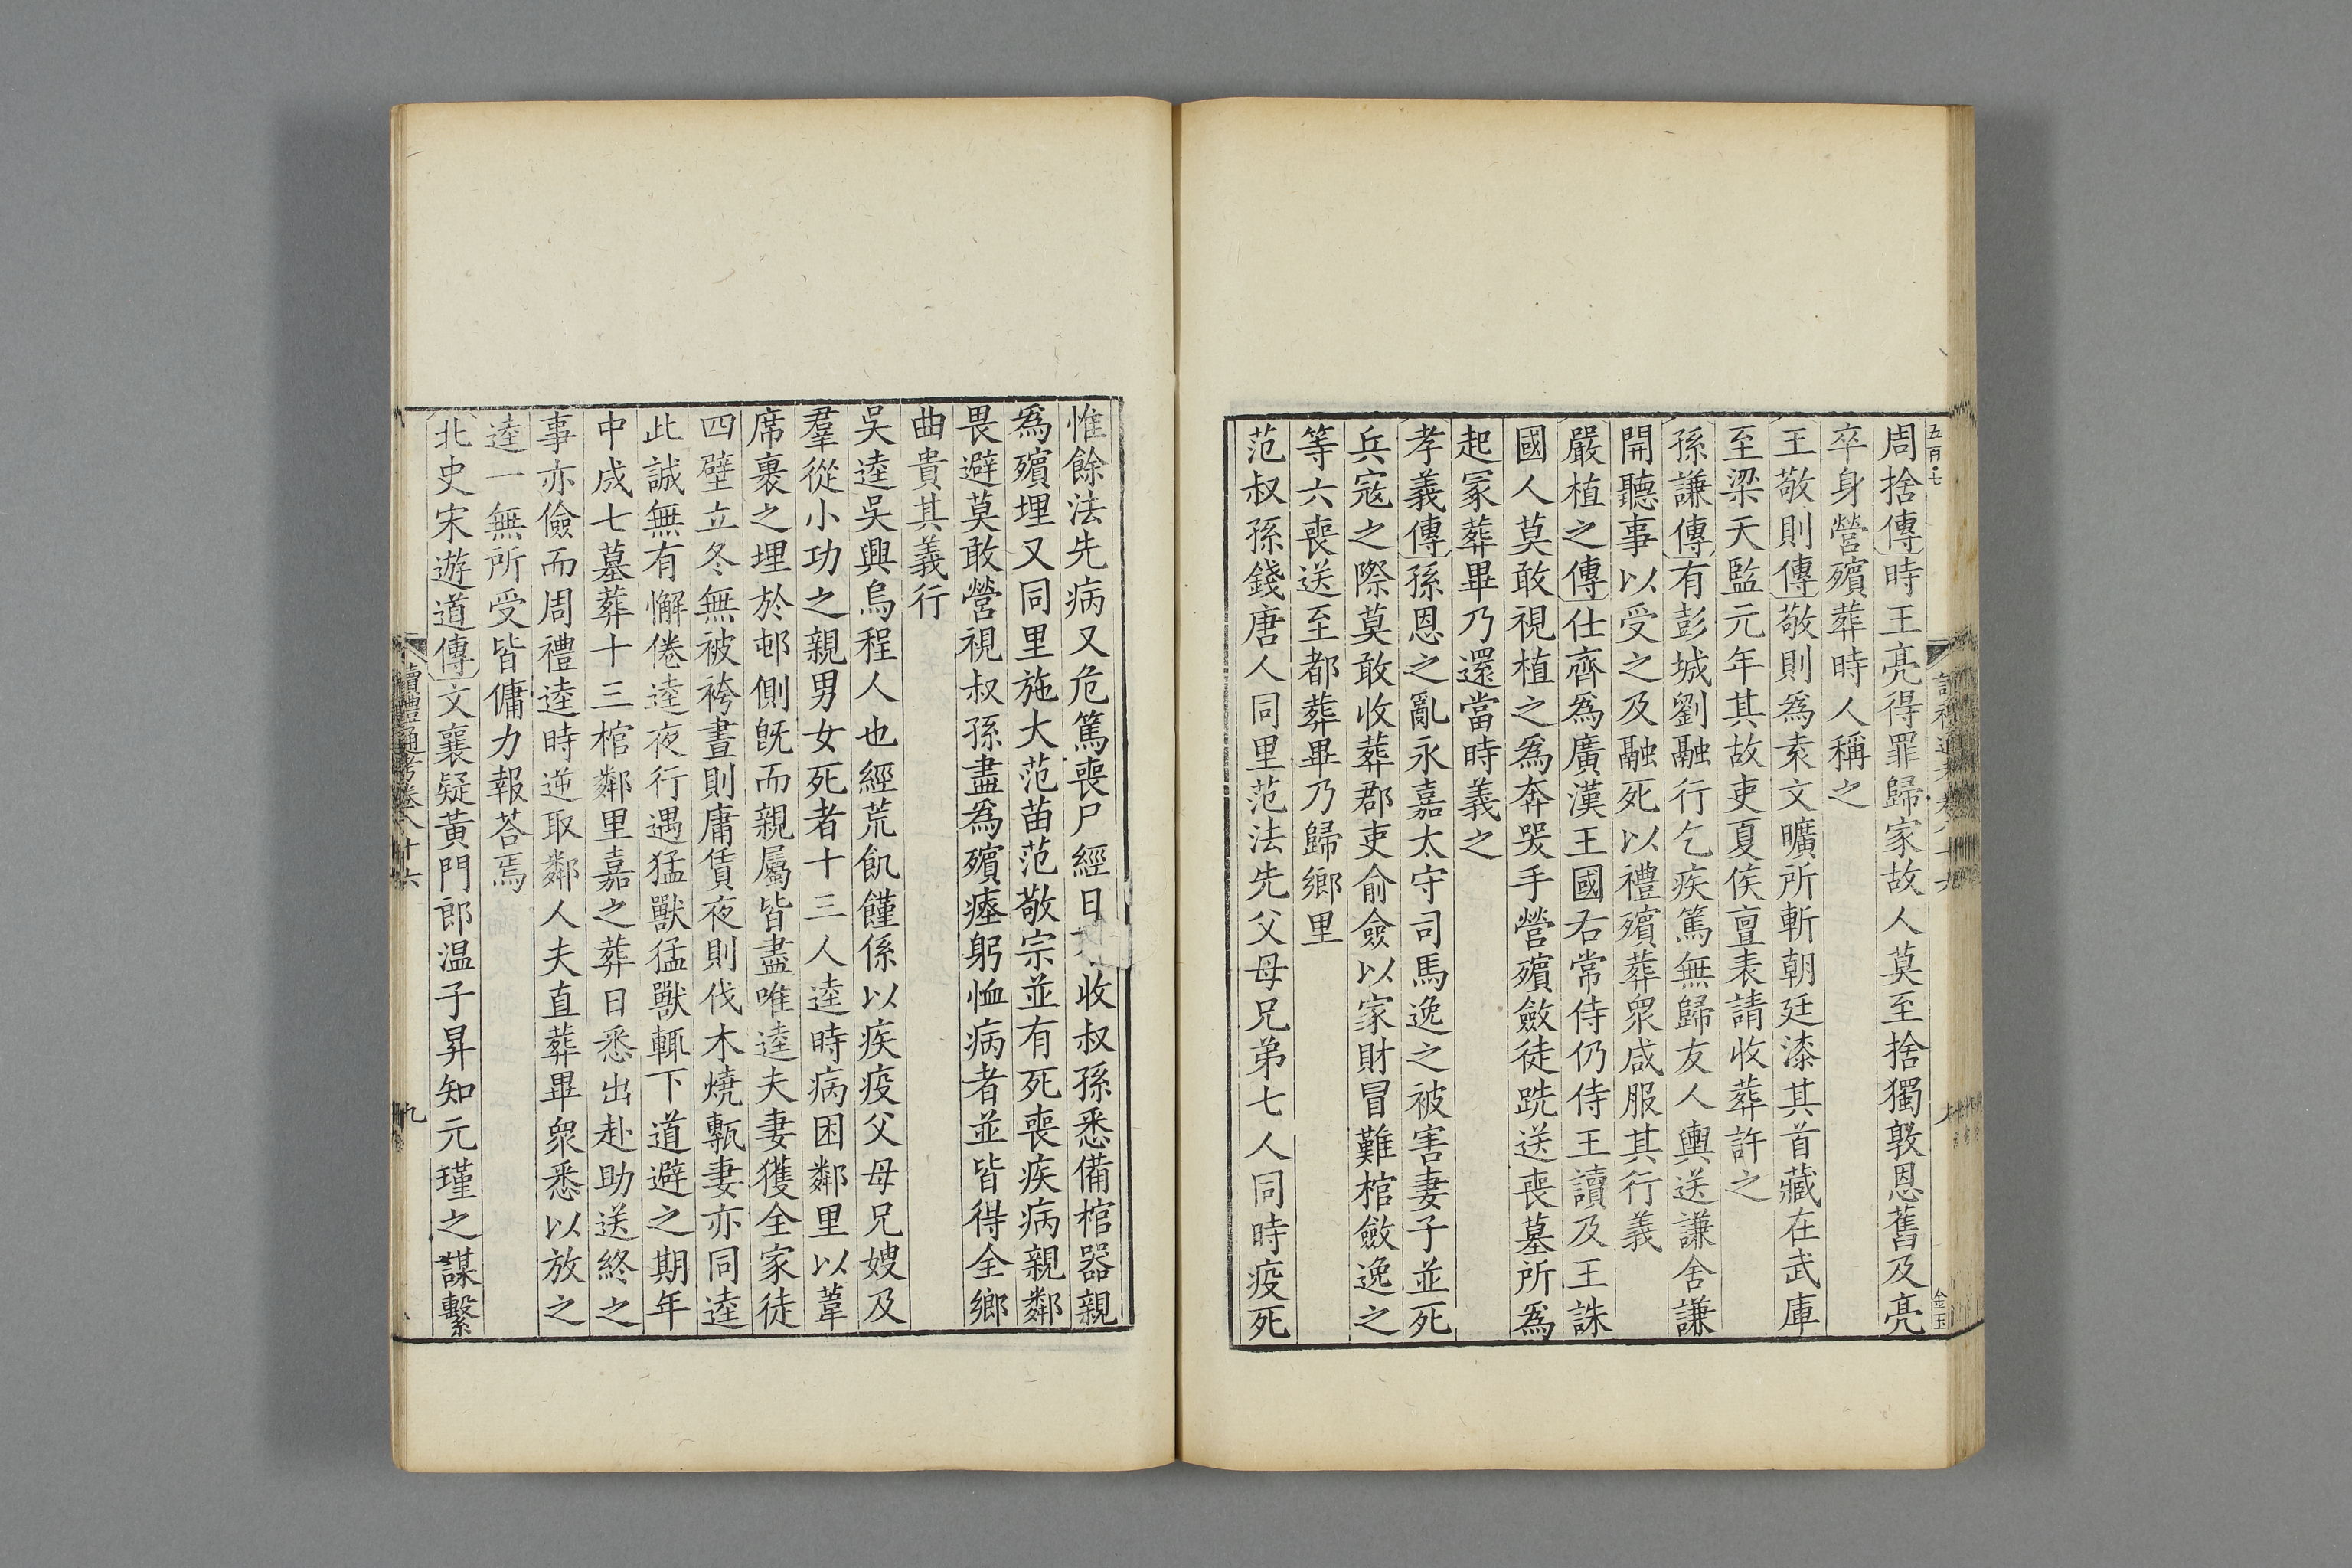 五百七
周捨傳時王亮得罪歸家故人莫至捨獨敦恩舊及亮
卒身營殯葬時人稱之
王敬則傳敬則爲袁文曠所斬朝廷漆其首藏在武庫
至梁天監元年其故吏夏侯亶表請收葬許之
孫謙傳有彭城劉融行乞疾篤無歸友人輿送謙舍謙
開聽事以受之及融死以禮殯葬衆咸服其行義
嚴植之傳仕齊爲廣漢王國右常侍仍侍王讀及王誅
國人莫敢視植之爲奔哭手營殯斂徒跣送喪墓所爲
起冢葬畢乃還當時義之
孝義傳孫恩之亂永嘉太守司馬逸之被害妻子並死
兵寇之際莫敢收葬郡吏俞僉以家財冒難棺斂逸之
等六喪送至都葬畢乃歸鄉里
范叔孫錢唐人同里范法先父母兄弟七人同時疫死
惟餘法先病又危篤喪尸經日收叔孫悉備棺器親
爲殯埋又同里施大范苗范敬宗並有死喪疾病親鄰
畏避莫敢營視叔孫盡爲殯瘞躬恤病者並皆得全鄉
曲貴其義行
吳逵吳興烏程人也經荒飢饉係以疾疫父母兄嫂及
羣從小功之親男女死者十三人逵時病困鄰里以葦
席裹之埋於邨側旣而親屬皆盡唯逵夫妻獲全家徒
四壁立冬無被袴晝則庸賃夜則伐木燒甎妻亦同逵
此誠無有懈倦逵夜行遇猛獸猛獸輒下道避之期年
中成七墓葬十三棺鄰里嘉之葬日悉出赴助送終之
事亦儉而周禮逵時逆取鄰人夫直葬畢衆悉以放之
逵一無所受皆傭力報荅焉
北史宋遊道傳文襄疑黃門郎温子昇知元瑾之謀繫
讀禮通考卷八十六
九